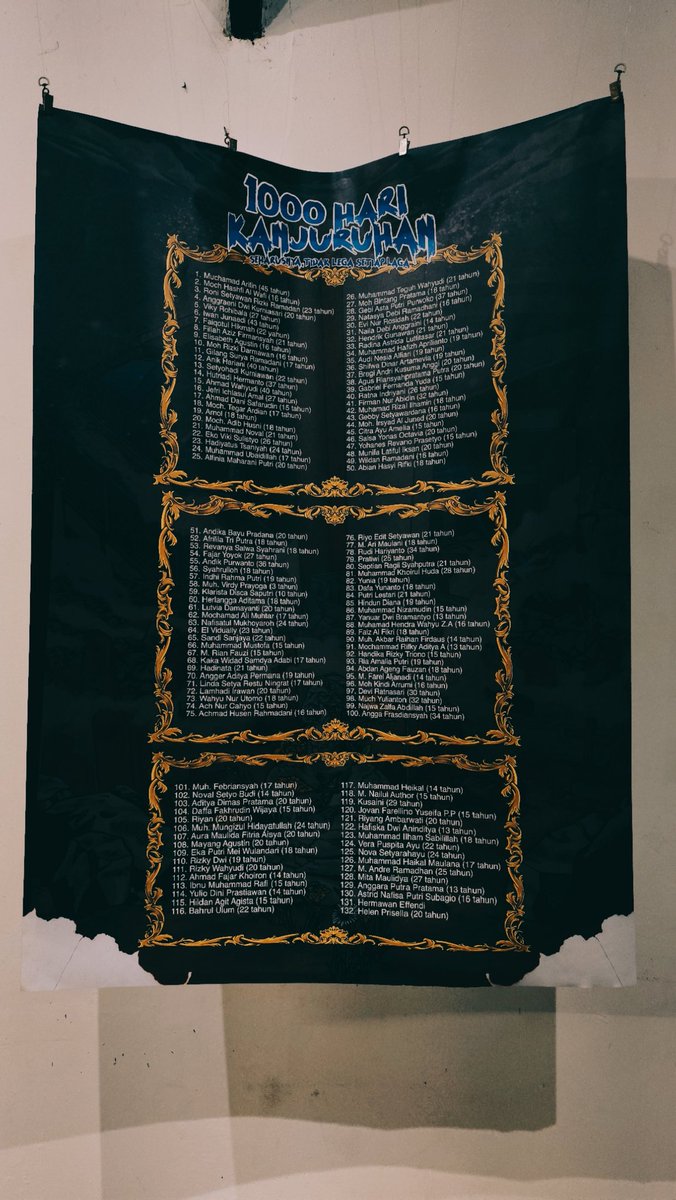 1000 HARI
KANJURUHAN
SEHARUSNYA, TIDAK LEGA SETIAP LAGA
1. Muchamad Arifin (45 tahun)
2. Moch Hashfi Al Wafi (16 tahun)
3. Roni Setyawan Rizki Ramadan (23 tahun)
4. Anggraeni Dwi Kurniasari (20 tahun)
5. Viky Rohibala (27 tahun)
6. Iwan Junaedi (43 tahun)
7. Faiqotul Hikmah (22 yahun)
8. Fillah Aziz Firmansyah (21 tahun)
9. Elisabeth Agustin (16 tahun)
10. Moh Rizki Darmawan (16 tahun)
11. Gilang Surya Ramadani (17 tahun)
12. Anik Hariani (40 tahun)
13. Setyohadi Kurniawan (22 tahun)
14. Hutriadi Hermanto (37 tahun)
15. Ahmad Wahyudi (40 tahun)
16. Jefri Ichlasul Amal (27 tahun)
17. Ahmad Dani Safarudin (15 tahun)
18. Moch. Tegar Ardian (17 tahun)
19. Arnol (18 tahun)
20. Moch. Adib Husni (18 tahun)
21. Muhammad Noval (21 tahun)
22. Eko Viki Sulistyo (26 tahun)
23. Hadiyatus Tsaniyah (24 tahun)
24. Muhammad Ubaidillah (17 tahun)
25. Alfinia Maharani Putri (20 tahun)
26. Muhammad Teguh Wahyudi (21 tahun)
27. Moh Bintang Pratama (18 tahun)
28. Gebi Asta Putri Purwoko (37 tahun)
29. Natasya Debi Ramadhani (16 tahun)
30. Evi Nur Rosidah (22 tahun)
31. Naila Debi Anggraini (14 tahun)
32. Hendrik Gunawan (21 tahun)
33. Radina Astrida Lutfitasar (21 tahun)
34. Muhammad Hafizh Aprilianto (19 tahun)
35. Audi Nesia Alfiari (19 tahun)
36. Shifwa Dinar Artamevia (19 tahun)
37. Bregi Andri Kusuma Anggi (20 tahun)
38. Agus Riansyahpratama Putra (20 tahun)
39. Gabriel Fernanda Yuda (15 tahun)
40. Ratna Indriyani (26 tahun)
41. Firman Nur Abidin (32 tahun)
42. Muhamad Rizal Ilhamin (18 tahun)
43. Gebby Setyawardana (16 tahun)
44. Moh. Irsyad Al Juned (20 tahun)
45. Citra Ayu Amelia (15 tahun)
46. Salsa Yonas Octavia (20 tahun)
47. Yohanes Revano Prasetyo (15 tahun)
48. Munifa Latiful Iksan (20 tahun)
49. Wildan Ramadani (16 tahun)
50. Abian Hasyi Rifki (18 tahun)
51. Andika Bayu Pradana (20 tahun)
52. Afrillia Tri Putra (18 tahun)
53. Revanya Salwa Syahrani (18 tahun)
54. Fajar Yoyok (27 tahun)
55. Andik Purwanto (36 tahun)
56. Syahrulloh (18 tahun)
57. Indhi Rahma Putri (19 tahun)
58. Muh. Virdy Prayoga (3 tahun)
59. Klarista Disca Saputri (10 tahun)
60. Herlangga Aditama (18 tahun)
61. Lutvia Damayanti (20 tahun)
62. Mochamad Ali Mohtar (17 tahun)
63. Nafisatul Mukhoyaroh (24 tahun)
64. El Vidually (23 tahun)
65. Sandi Sanjaya (22 tahun)
66. Muhammad Mustofa (15 tahun)
67. M. Rian Fauzi (15 tahun)
68. Kaka Widad Samdya Adabi (17 tahun)
69. Hadinata (21 tahun)
70. Angger Aditya Permana (19 tahun)
71. Linda Setya Restu Ningrat (17 tahun)
72. Lamhadi Irawan (20 tahun)
73. Wahyu Nur Utomo (18 tahun)
74. Ach Nur Cahyo (15 tahun)
75. Achmad Husen Rahmadani (16 tahun)
76. Riyo Edit Setyawan (21 tahun)
77. M. Ari Maulani (18 tahun)
78. Rudi Hariyanto (34 tahun)
79. Pratiwi (25 tahun)
80. Septian Ragil Syahputra (21 tahun)
81. Muhammad Khoirul Huda (28 tahun)
82. Yunia (19 tahun)
83. Dafa Yunanto (18 tahun)
84. Putri Lestari (21 tahun)
85. Hindun Diana (19 tahun)
86. Muhammad Nizamudin (15 tahun)
87. Yanuar Dwi Bramantyo (13 tahun)
88. Muhamad Hendra Wahyu Z.A (16 tahun)
89. Faiz Al Fikri (18 tahun)
90. Muh. Akbar Raihan Firdaus (14 tahun)
91. Mochammad Rifky Aditya A (13 tahun)
92. Handika Rizky Triono (15 tahun)
93. Ria Amalia Putri (19 tahun)
94. Abdan Ageng Fauzan (18 tahun)
95. M. Farel Aljanadi (14 tahun)
96. Moh Kindi Arrumi (16 tahun)
97. Devi Ratnasari (30 tahun)
98. Much Yulianton (32 tahun)
99. Najwa Zalfa Abdillah (15 tahun)
100. Angga Frasdiansyah (34 tahun)
101. Muh. Febriansyah (17 tahun)
102. Noval Setyo Budi (14 tahun)
103. Aditya Dimas Pratama (20 tahun)
104. Daffa Fakhrudin Wijaya (15 tahun)
105. Riyan (20 tahun)
106. Muh. Mungizul Hidayatullah (24 tahun)
107. Aura Maulida Fitria Aisya (20 tahun)
108. Mayang Agustin (20 tahun)
109. Eka Putri Mei Wulandari (18 tahun)
110. Rizky Dwi (19 tahun)
111. Rizky Wahyudi (20 tahun)
112. Ahmad Fajar Khoiron (14 tahun)
113. Ibnu Muhammad Rafi (15 tahun)
114. Yulio Dini Prastiawan (14 tahun)
115. Hildan Agit Agista (15 tahun)
116. Bahrul Ulum (22 tahun)
117. Muhammad Heikal (14 tahun)
118. M. Nailul Author (15 tahun)
119. Kusaini (29 tahun)
120. Jovan Farellino Yuseifa P.P (15 tahun)
121. Riyang Ambarwati (20 tahun)
122. Hafiska Dwi Aninditya (13 tahun)
123. Muhammad Ilham Sabilillah (18 tahun)
124. Vera Puspita Ayu (22 tahun)
125. Nova Setyarahayu (24 tahun)
126. Muhammad Haikal Maulana (17 tahun)
127. M. Andre Ramadhan (25 tahun)
128. Mita Maulidya (27 tahun)
129. Anggara Putra Pratama (13 tahun)
130. Astrid Nafisa Putri Subagio (16 tahun)
131. Hermawan Effendi
132. Helen Prisella (20 tahun)